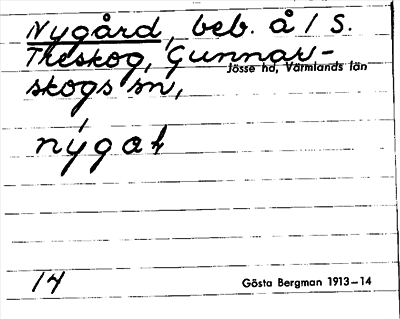 Nygård, beb. å / S.
Treskog, Gunnar-
skogs sn,
Jösse hd, Värmlands län
14
Gösta Bergman 1913–14